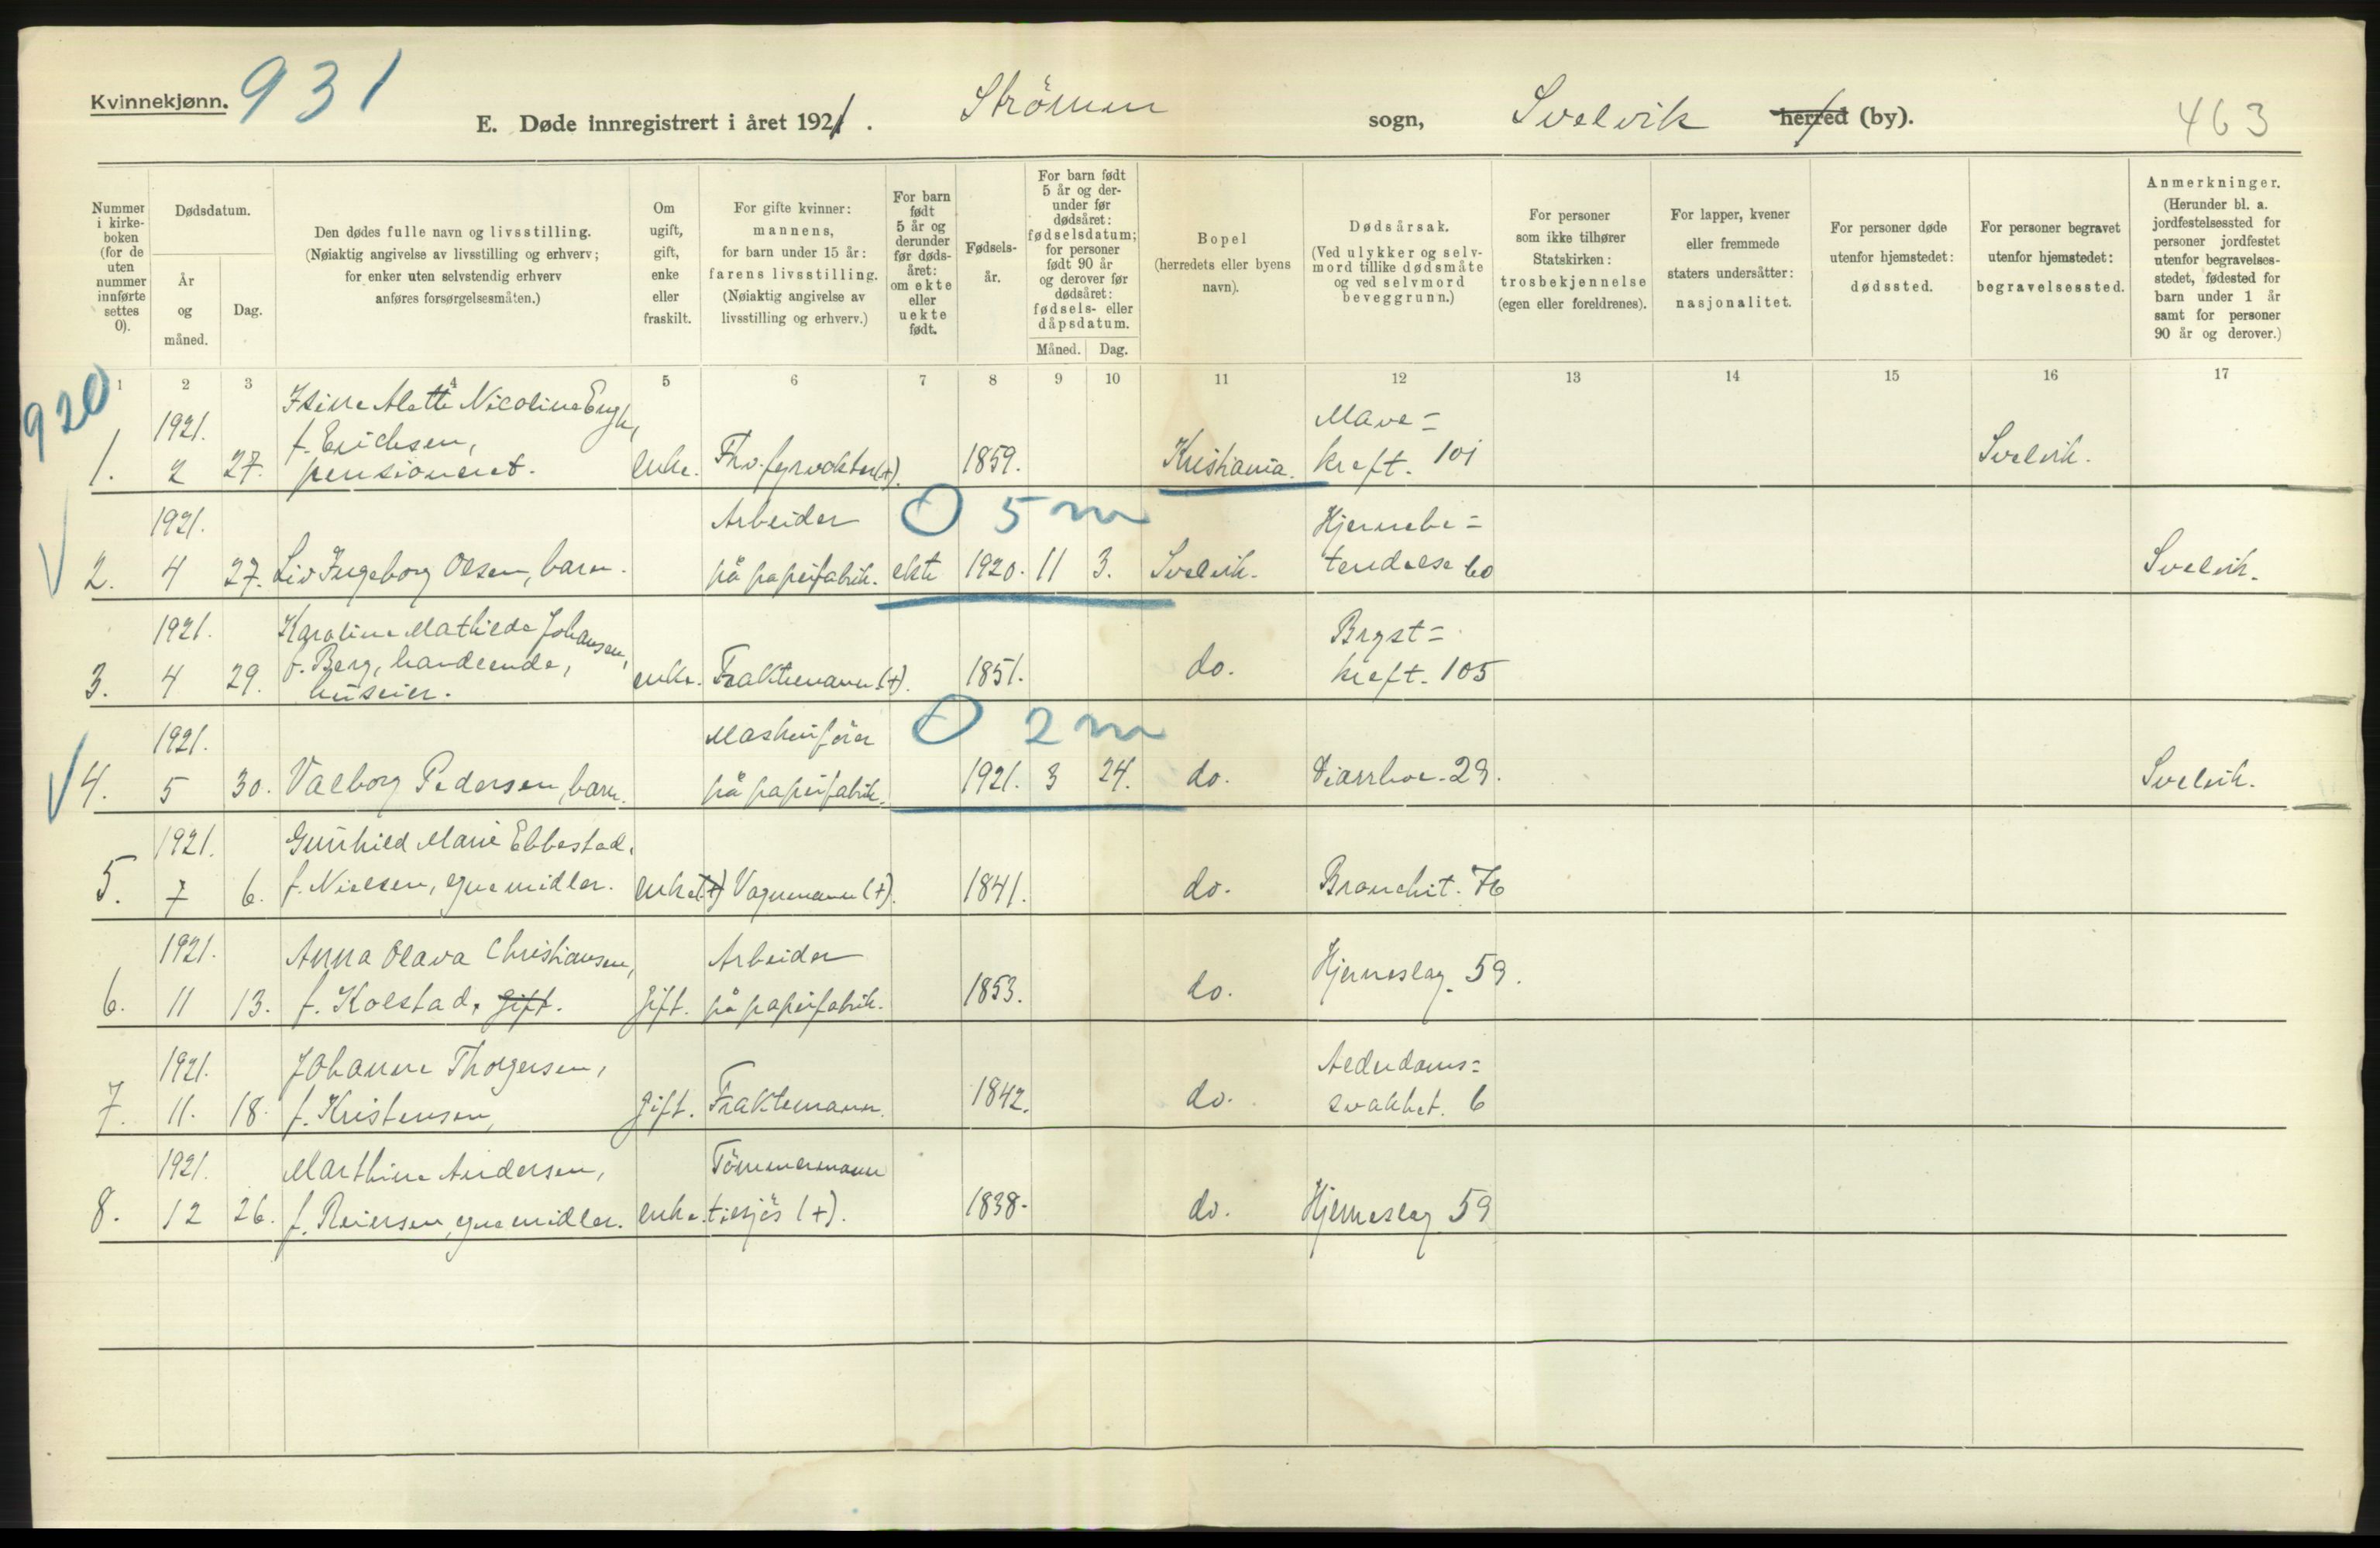 Kvinnekjønn.
931
E. Døde innregistrert i året 1921.
Strömm sogn,
Svelvik herred (by).
463
Nummer i kirke-boken (for de uten nummer innførte settes 0).
Dødsdatum.
År og måned.
Dag.
Den dødes fulle navn og livsstilling.
(Nøiaktig angivelse av livsstilling og erhverv;
for enker uten selvstendig erhverv
anføres forsørgelsesmåten.)
Om ugift, gift, enke eller fraskilt.
For gifte kvinner:
mannens,
for barn under 15 år:
farens livsstilling.
(Nøiaktig angivelse av
livsstilling og erhverv.)
For barn født 5 år og derunder før døds-året: om ekte eller uekte født.
Fødsels-år.
For barn født 5 år og der-under før dødsåret: fødselsdatum; for personer født 90 år og derover før dødsåret: fødsels- eller dåpsdatum.
Måned. Dag.
Bopel
(herredets eller byens
navn).
Dødsårsak.
(Ved ulykker og selv-
mord tillike dødsmåte
og ved selvmord
beveggrunn.)
For personer
som ikke tilhører
Statskirken:
trosbekjennelse
(egen eller foreldrenes).
For lapper, kvener
eller fremmede
staters undersåtter:
nasjonalitet.
For personer døde
utenfor hjemstedet:
dødssted.
For personer begravet
utenfor hjemstedet:
begravelsessted.
Anmerkninger.
(Herunder bl. a.
jordfestelsessted for
personer jordfestet
utenfor begravelses-
stedet, fødested for
barn under 1 år
samt for personer
90 år og derover.)
1 2 3 4 5 6 7 8 9 10 11 12 13 14 15 16 17
920
1921. Alette Nicoline Engh, Mave=
f. Erichsen,
1. 2 27. pensioneret. enke. Fhv. fyrvokter (+). 1859. Kristiania. kreft. 101 Svelvik.
1921. Arbeider 5 m Hjernebe=
2. 4 27. Liv Ingeborg Olsen, barn. på papirfabrik. ekte 1920. 11 3. Svelvik. tendelse 60 Svelvik.
1921. Karoline Mathilde Johansen, Bryst=
f. Berg, handlende,
3. 4 29. huseier. enke. Fraktemann (+). 1851. do. kreft. 105
1921. Maskinfører 2 m
4. 5 30. Valborg Pedersen, barn. på papirfabrik. 1921. 3 24. do. Diarrhoe. 29. Svelvik.
1921. Gunhild Marie Ebbestad,
5. 7 6. f. Nielsen, egne midler. enke (+) Vognmann (+). 1841. do. Bronchit. 76
1921. Anna Olava Christiansen, Arbeider
6. 11 13. f. Kolstad. gift. gift. på papirfabrik. 1853. do. Hjerneslag. 59.
1921. Johanne Thorgersen, Alderdoms=
7. 11. 18. f. Kristensen, gift. Fraktemann. 1842. do. svakhet. 6
1921. Marthine Andersen, Tömmermann
8. 12 26. f. Reiersen, egne midler. enke. tilsjös (+). 1838. do. Hjerneslag 59